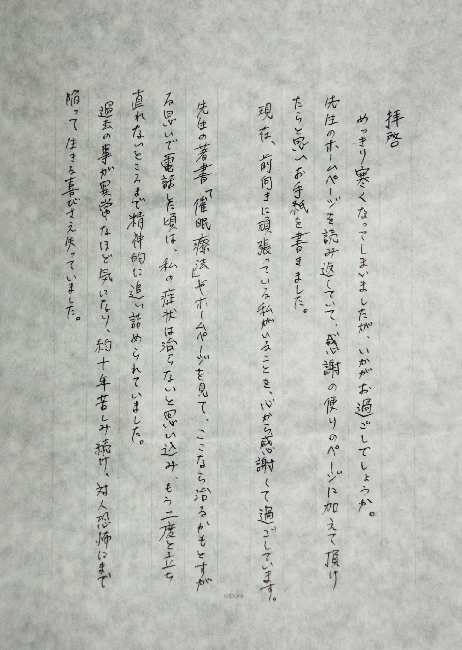 拝啓
めっきり寒くなってしまいましたが、いかがお過ごしでしょうか。
先生のホームページを読み返していて、感謝の便りのページに加えて頂け
たらと思いお手紙を書きました。
現在、前向きに頑張っている私がいることを、心から感謝して過ごしています。
先生の著書「催眠療法」やホームページを見て、ここなら治るかもとすが
る思いで電話した頃は、私の症状は治らないと思い込み、もう二度と立ち
直れないところまで精神的に追い詰められていました。
過去の事が異常なほど気になり、約十年苦しみ続け、対人恐怖にまで
陥って生きる喜びさえ失っていました。